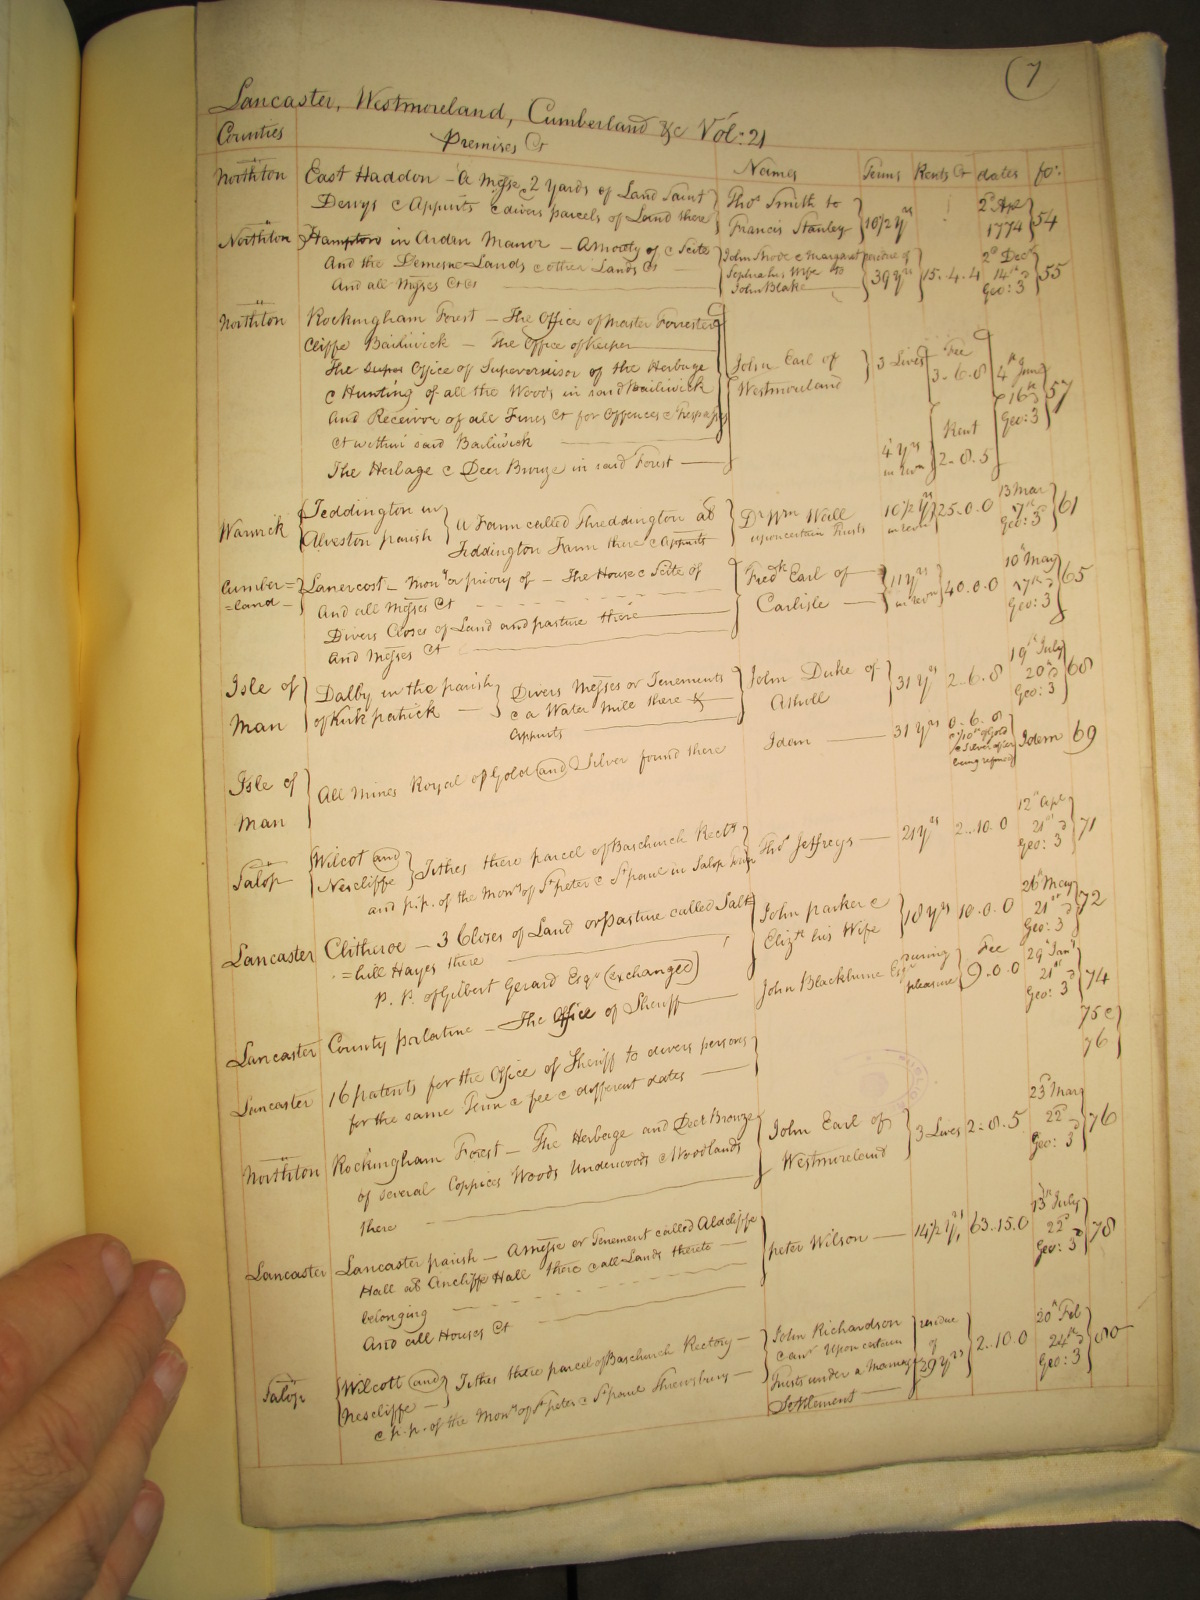 (7
Lancaster, Westmoreland, Cumberland &c Vol: 21
Counties Premises Ct Names Terms Rents Ct dates fo:
Northton East Haddon – a Messe, 2 yards of Land Saint Thos Smith to 2d Apl
Derrys & Appurts & divers parcels of Land there Francis Stanley 10½ yrs 1774 54
Northton Hampton in Arden Manor – A moiety of & Scite John Shove & Margaret residue of 2d Decr
And the Demesne Lands & other Lands Ct his Wife to 39 yrs 15.4.4 14th 55
And all Messes Ct Ct John Blake Geo: 3d
Northton Rockingham Forest – The Office of Master Forrester
Cliffe Bailiwick – The Office of Keeper
The super Office of Supervisor of the Herbage John Earl of 3 Lives Fee 4th June
& Hunting of all the Woods in said Bailiwick Westmoreland 3.6.8 16th 57
And Receiver of all Fines Ct for Offences & Trespasses Geo: 3
Ct within said Bailiwick 4 yrs Rent
The Herbage & Deer Browze in said Forest in revn 2.8.5
Warwick Teddington in a Farm called Threddington als Dr Wm Wall 10½ yrs 25.0.0 13 Mar
Alveston parish Teddington Farm there & Appurts upon certain Trusts in revn 17th Geo: 3 61
Cumber= Lanercost – Mony or priory of – The House & Scite of Fredk Earl of 11 yrs 40.0.0 10th May
=land – And all Messes Ct Carlisle in revn 17th 65
Divers Closes of Land and pasture there Geo: 3
And Messes Ct
Isle of Dalby in the parish Divers Messes or Tenements John Duke of 31 yrs 2.6.8 19th July
Man of Kirk patrick & a Water Mill there & Atholl 20th 68
Appurts Geo: 3
Isle of All Mines Royal of Gold and Silver found there Idem 31 yrs 0.6.8 Idem 69
Man & 1/10th of Gold
& Silver after
being refined
Salop Wilcot and Tithes there parcel of Baschurch Recty Thos Jeffreys 21 yrs 2.10.0 12th Apl
Nescliffe and p.p. of the Mony of St peter & St paul in Salop 21st Geo: 3d 71
Lancaster Clitheroe – 3 Closes of Land or Pasture called Salt John parker & 18 yrs 10.0.0 26th May
=hill Hayes there Elizth his Wife 21st 72
p. P. of Gilbert Gerard Esqr (exchanged) Geo: 3d
Lancaster County palatine – The Office of Sheriff John Blackburne Esqr during pleasure Fee 9.0.0 29th Jany 21st Geo: 3d 74
Lancaster 16 patents for the Office of Sheriff to divers persons 75 &
for the same Term & fee & different dates 76
Northton Rockingham Forest – The Herbage and Deer Browze John Earl of 3 Lives 2.8.5 23d Mar
of several Coppices Woods Underwoods & Woodlands Westmoreland 22d 76
there Geo: 3d
Lancaster Lancaster parish – A Messe or Tenement called Aldcliffe Peter Wilson 14½ yrs 63.15.0 13th July
Hall als Ancliffe Hall there & all Lands thereto 22d 78
belonging Geo: 3d
And all Houses Ct
Salop Wilcott and Tithes there parcel of Baschurch Rectory – John Richardson residue 2.10.0 20th Feb
Nescliffe – & p.p. of the Mony of St peter & St paul Shrewsbury – & anr Upon certain of 24th 80
Trusts under a Marriage 29 yrs Geo: 3
Settlement